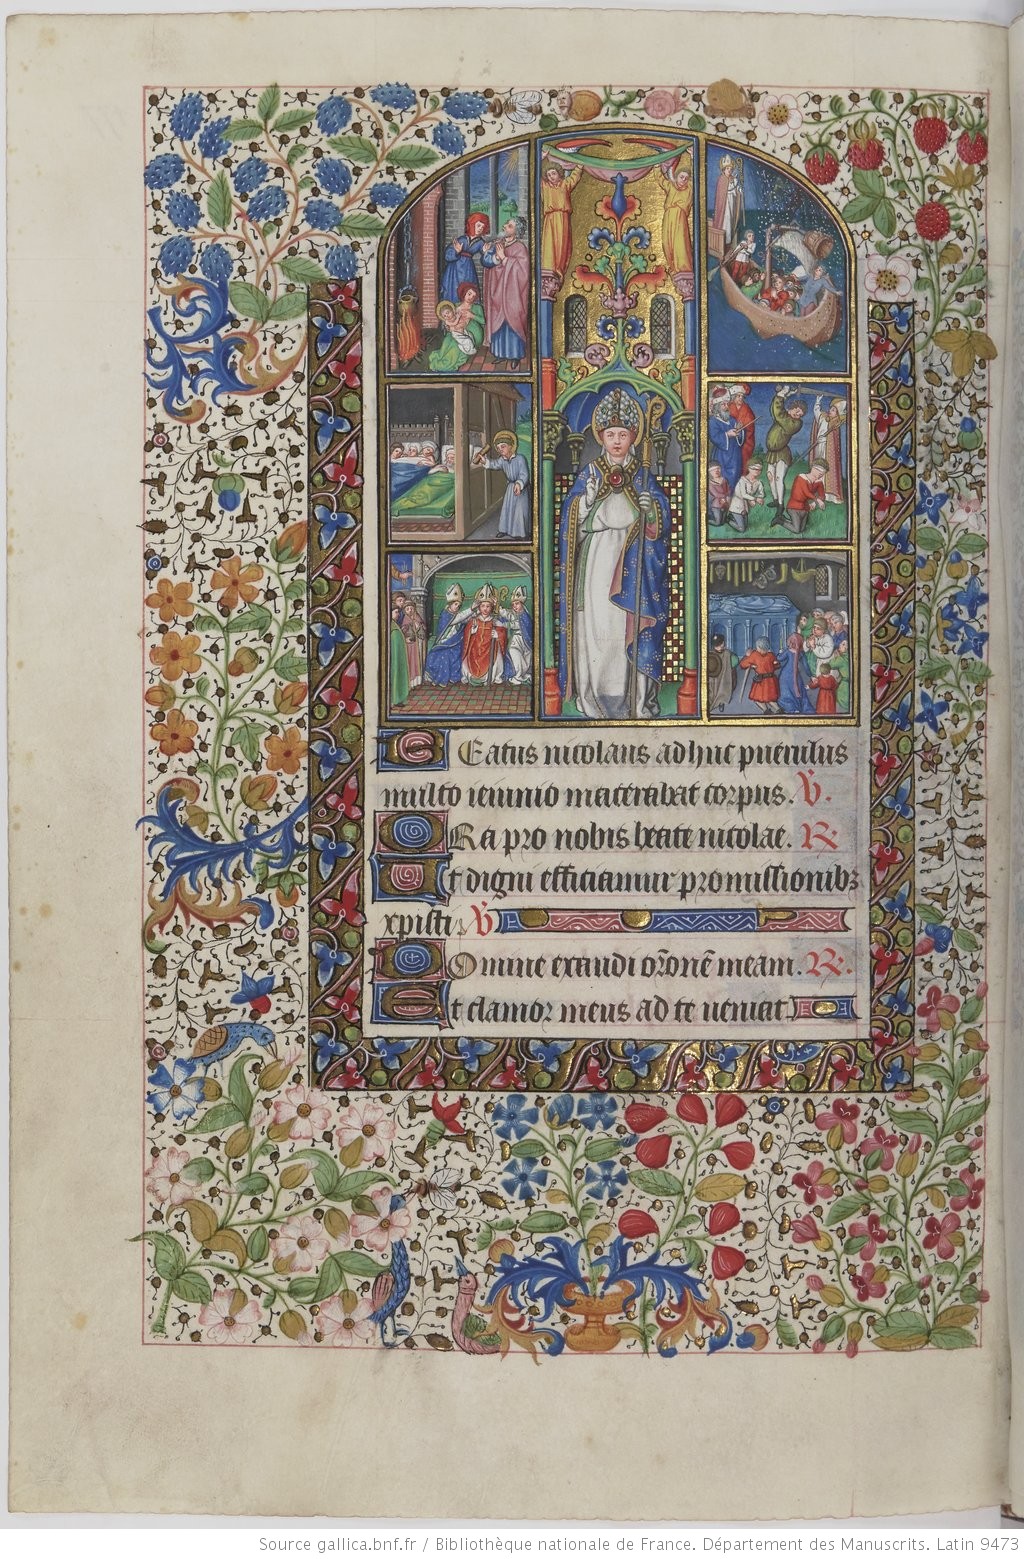 Eatus nicolaus adhuc puerulus
multo ieiunio macerabat corpus. V.
ORa pro nobis beate nicolae. R
Et digni efficiamur promissionibꝫ
xpisti. V
Domine exaudi orōnē meam. R.
Et clamor meus ad te ueniat
Source gallica.bnf.fr / Bibliothèque nationale de France. Département des Manuscrits. Latin 9473